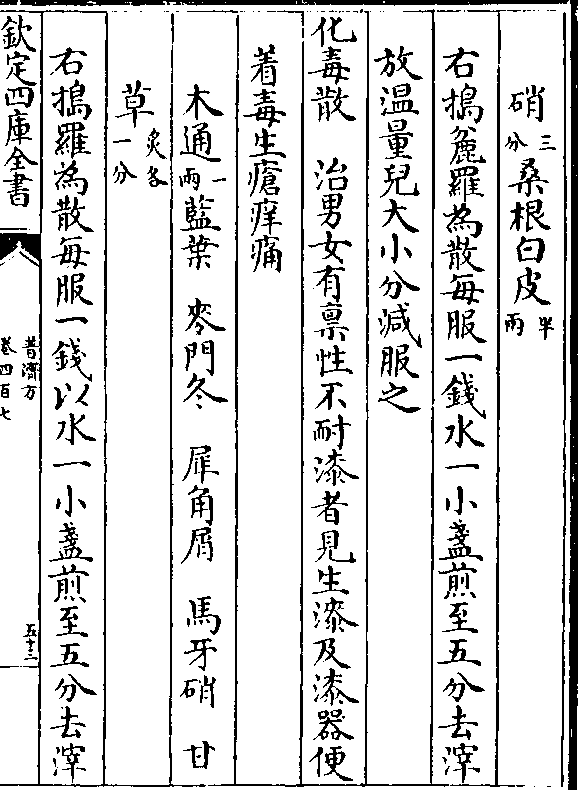 硝三分桑根白皮半兩
右搗麄羅為散每服一錢水一小盞煎至五分去滓
放温量兒大小分減服之
化毒散　治男女有禀性不耐漆者見生漆及漆器便
着毒生瘡痒痛
木通一兩藍葉　麥門冬　犀角屑　馬牙硝　甘
草炙各一分
右搗羅為散每服一錢以水一小盞煎至五分去滓
欽定四庫全書
普濟方
卷四百七
五十三